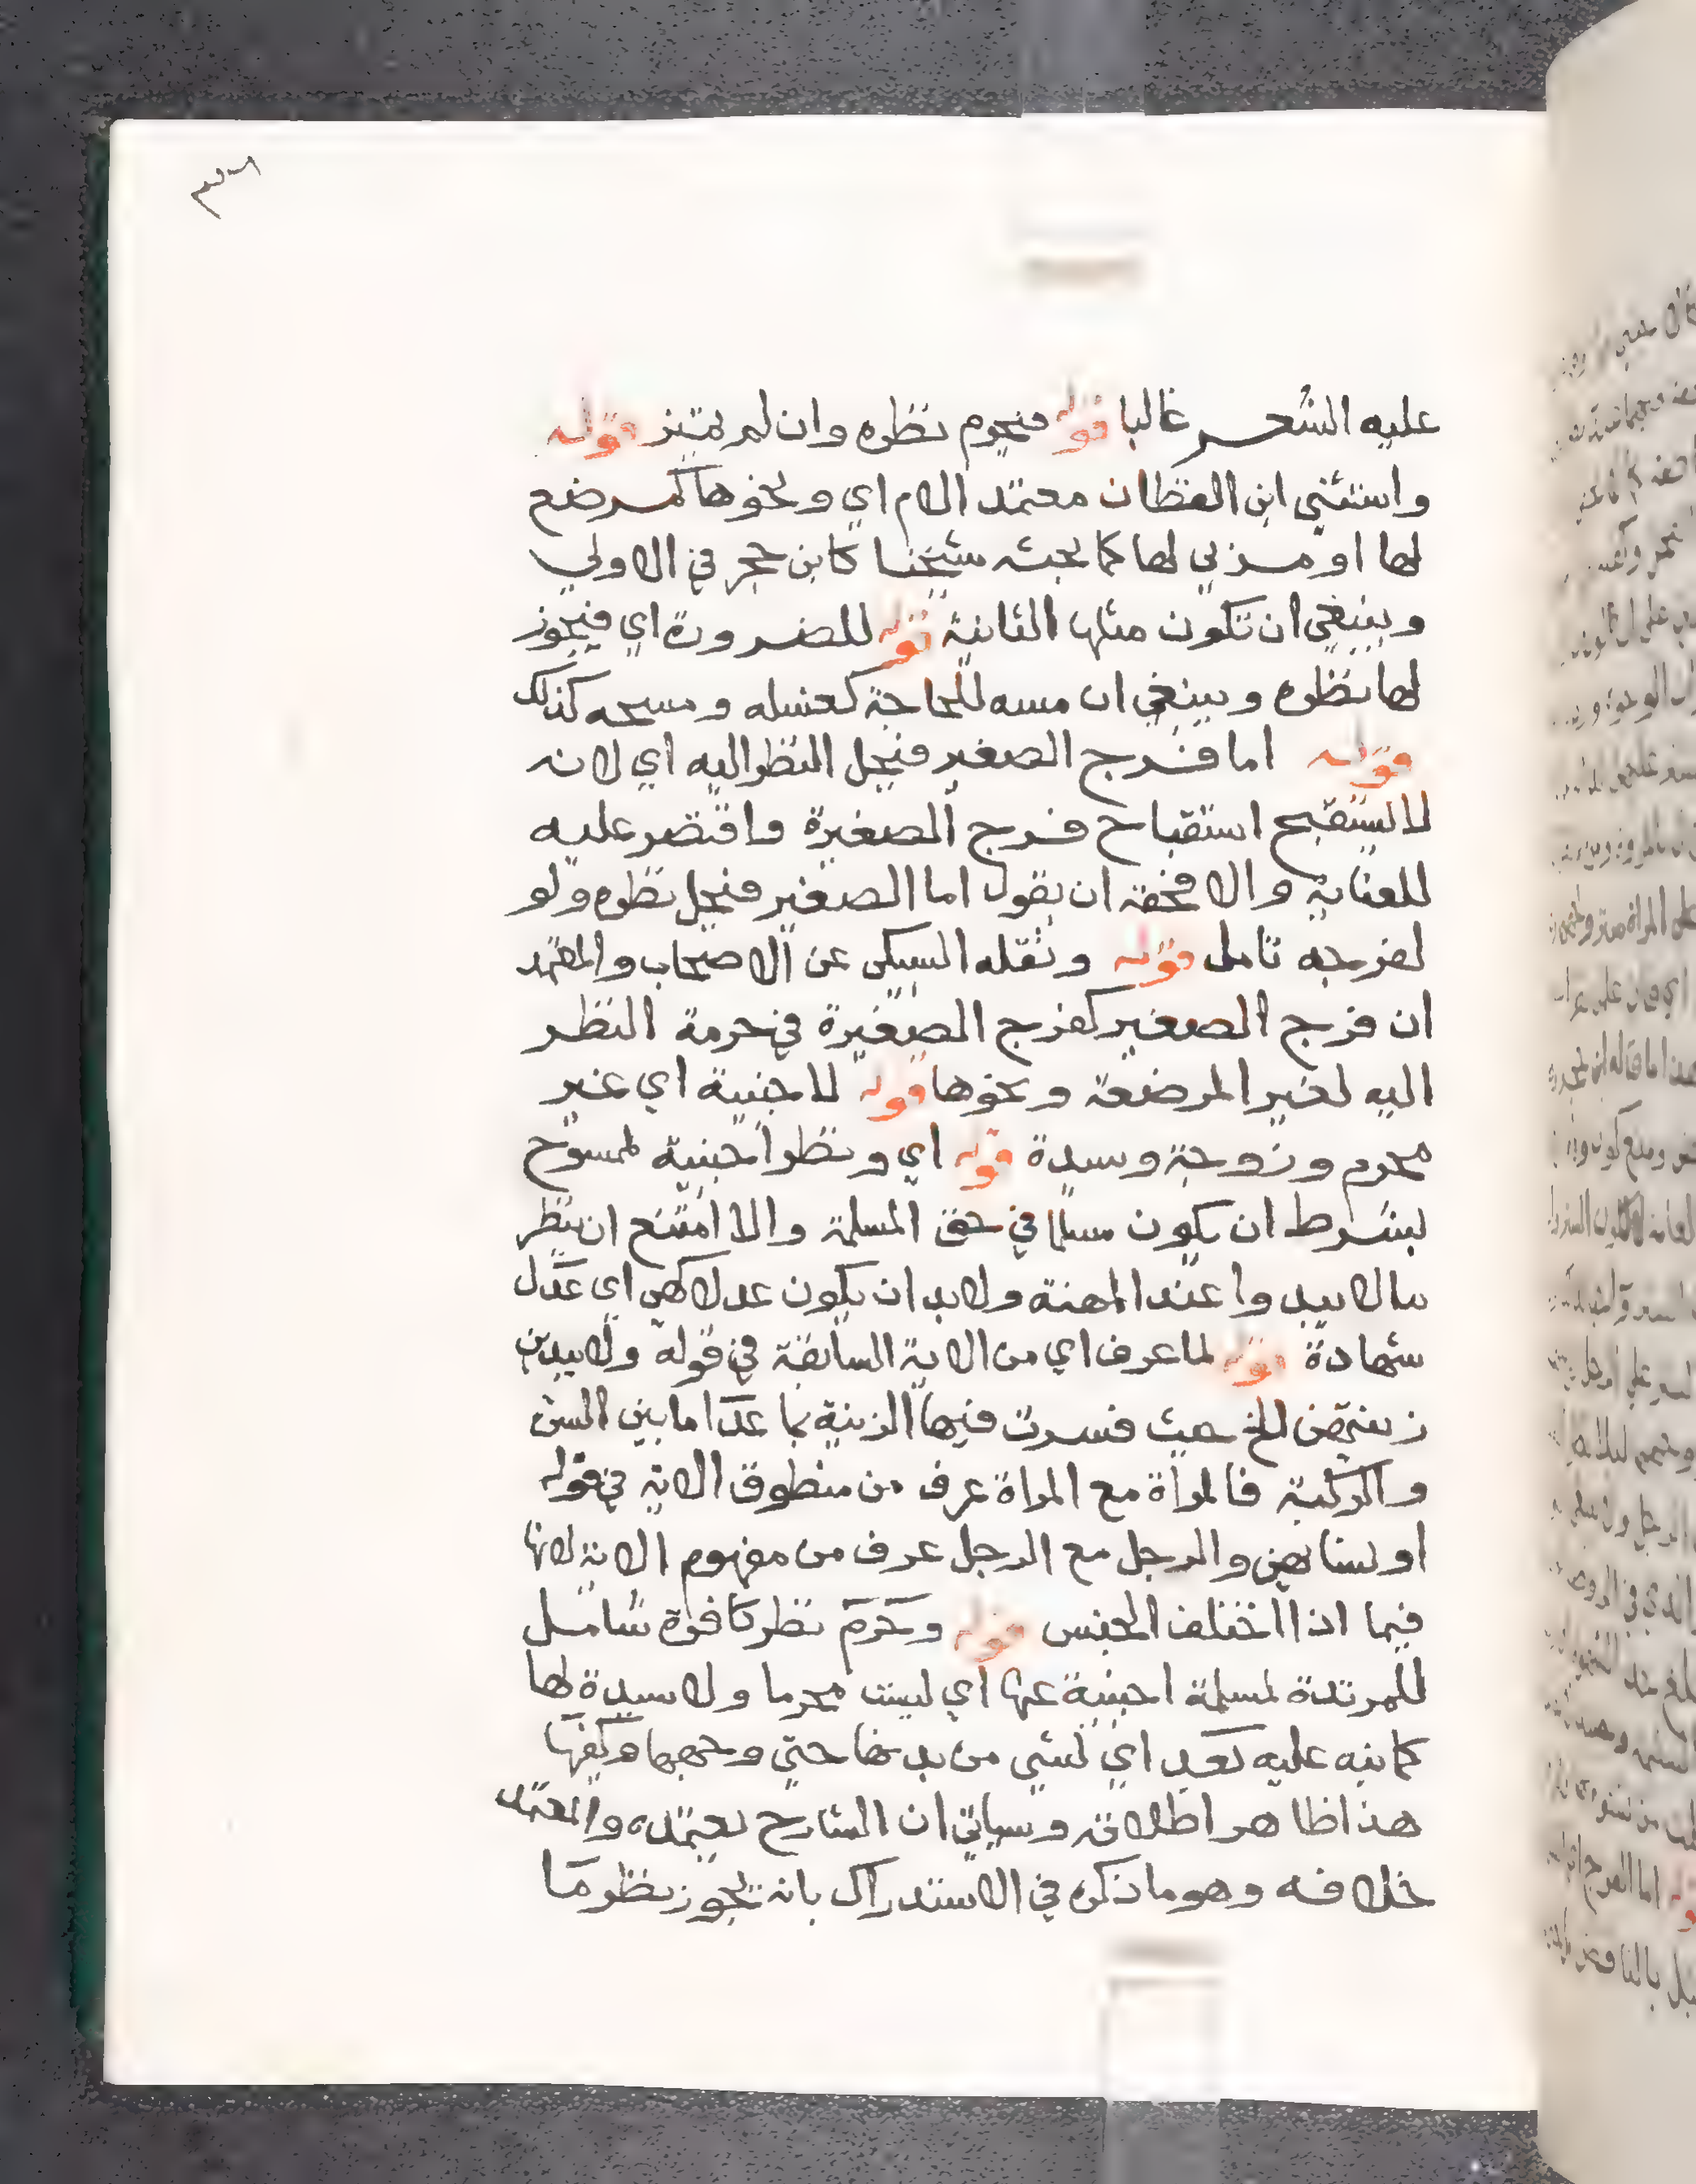 عليه الشعر غالبا قوله فيحرم نظره وان لم يميز قوله
واستثني ابن القطان معتمد الام اي ونحوها كمرضع
لها او مربي لها كما بحثه شيخنا كابن حجر في الاولي
وينبغي ان تكون مثلها الثانية قوله للضرورة اي فيجوز
لها نظره وينبغي ان مسه للحاجة كغسله ومسحه كذلك
قوله اما فرج الصغير فيحل النظر اليه اي لانه
لا يستقبح استقباح فرج الصغيرة واقتصر عليه
للعناية والا فحقه ان يقول اما الصغير فيحل نظره ولو
لفرجه تامل قوله ونقله السبكي عن الاصحاب والمعتمد
ان فرج الصغير كفرج الصغيرة في حرمة النظر
اليه لغير المرضعة ونحوها قوله لاجنبية اي غير
محرم وزوجة وسيدة قوله اي ونظر اجنبية لممسوح
بشرط ان يكون مسلما في حق المسلمة والا امتنع ان ينظر
ولابد ان يكون عدلا كهي اي عدل
شهادة قوله لما عرف اي من الاية السابقة في قوله ولا يبدين
زينتهن الخ حيث فسرت فيها الزينة بما عدا ما بين السرة
والركبة فالمراة مع المراة عرف من منطوق الاية في قوله
او نسائهن والرجل مع الرجل عرف من مفهوم الاية لانها
فيما اذا اختلف الجنس قوله وحرم نظر كافرة شامل
للمرتدة لمسلمة اجنبية عنها اي ليست محرما ولا سيدة لها
كما نبه عليه بعد اي لشي من بدنها حتي وجهها وكفيها
هذا ظاهر اطلاقه وسياتي ان الشارح يعتمده والمعتمد
خلافه وهو ما ذكره في الاستدراك بانه يجوز نظر ما